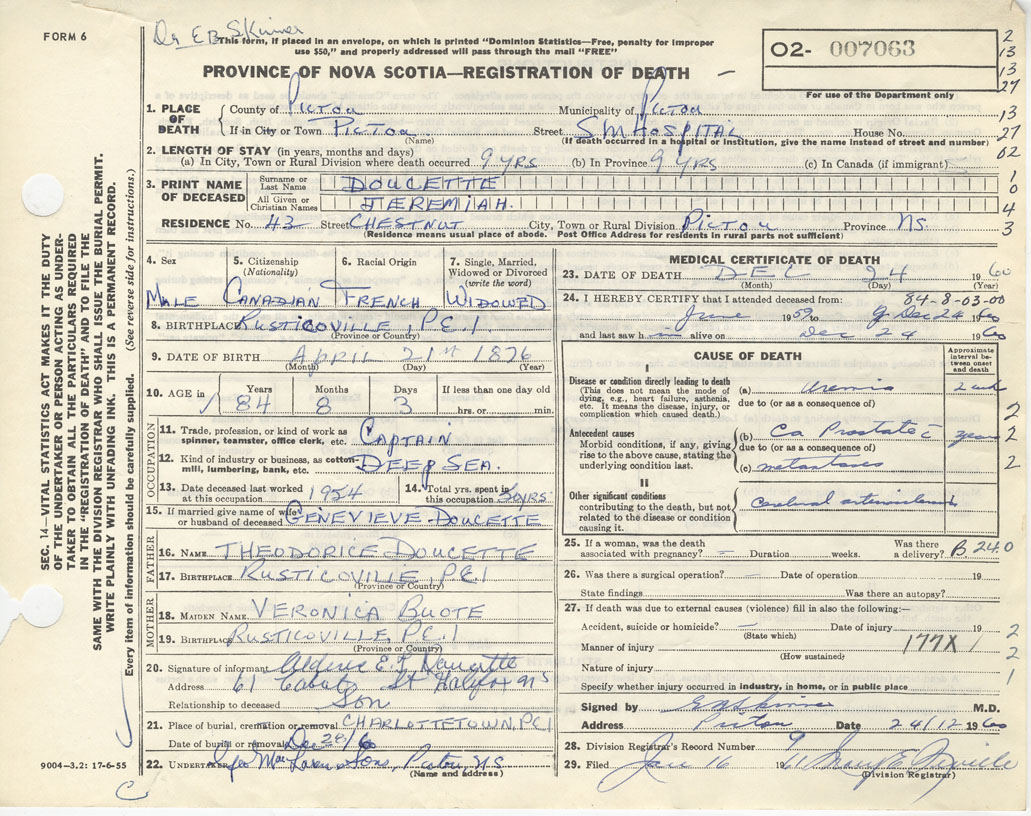 FORM 6
Dr E B Skinner
This form, if placed in an envelope, on which is printed "Dominion Statistics—Free, penalty for improper
use $50," and properly addressed will pass through the mail "FREE"
PROVINCE OF NOVA SCOTIA—REGISTRATION OF DEATH
O2- 007063
For use of the Department only
2
13
13
27
13
27
02
1
0
4
3
1. PLACE OF DEATH
County of Pictou Municipality of Pictou
If in City or Town Pictou Street S M Hospital House No.
(Name) (If death occurred in a hospital or institution, give the name instead of street and number)
2. LENGTH OF STAY (in years, months and days)
(a) In City, Town or Rural Division where death occurred 9 yrs (b) In Province 9 yrs (c) In Canada (if immigrant)
3. PRINT NAME OF DECEASED
Surname or Last Name DOUCETTE
All Given or Christian Names JEREMIAH.
RESIDENCE No. 43 Street CHESTNUT City, Town or Rural Division Pictou Province NS.
(Residence means usual place of abode. Post Office Address for residents in rural parts not sufficient)
4. Sex 5. Citizenship (Nationality) 6. Racial Origin 7. Single, Married, Widowed or Divorced (write the word)
Male Canadian French Widowed
8. BIRTHPLACE Rusticoville, P.E.I
(Province or Country)
9. DATE OF BIRTH April 21st 1876
(Month) (Day) (Year)
10. AGE in Years Months Days If less than one day old
84 8 3 hrs. or min.
OCCUPATION
11. Trade, profession, or kind of work as spinner, teamster, office clerk, etc. Captain
12. Kind of industry or business, as cotton-mill, lumbering, bank, etc. Deep Sea.
13. Date deceased last worked at this occupation 1954 14. Total yrs. spent in this occupation 50yrs
15. If married give name of wife or husband of deceased Genevieve Doucette
FATHER
16. NAME Theodorice Doucette
17. BIRTHPLACE Rusticoville, P.E.I
(Province or Country)
MOTHER
18. MAIDEN NAME Veronica Buote
19. BIRTHPLACE Rusticoville, P.E.I
(Province or Country)
20. Signature of informant E. Doucette
Address 61 Cabot St Halifax NS
Relationship to deceased Son
21. Place of burial, cremation or removal Charlottetown, P.E.I
Date of burial or removal Dec 28/60
22. UNDERTAKER MacLaren & Sons, Pictou, NS
(Name and address)
MEDICAL CERTIFICATE OF DEATH
23. DATE OF DEATH DEC 24 1960
(Month) (Day) (Year)
84-8-03-00
24. I HEREBY CERTIFY that I attended deceased from:
June 1959 Dec 24 1960
and last saw him alive on Dec 24 1960
CAUSE OF DEATH
Approximate interval between onset and death
I
Disease or condition directly leading to death
(This does not mean the mode of dying, e.g., heart failure, asthenia, etc. It means the disease, injury, or complication which caused death.)
(a) Uremia 2 wk
due to (or as a consequence of)
Antecedent causes
Morbid conditions, if any, giving rise to the above cause, stating the underlying condition last.
(b) Ca Prostate c̄ years
due to (or as a consequence of)
(c) metastases
II
Other significant conditions
contributing to the death, but not related to the disease or condition causing it.
Cerebral arteriosclerosis
2
2
2
25. If a woman, was the death associated with pregnancy? — Duration weeks. Was there a delivery? B 24.0
26. Was there a surgical operation? — Date of operation 19
State findings Was there an autopsy?
27. If death was due to external causes (violence) fill in also the following:—
Accident, suicide or homicide? — Date of injury 19
(State which)
Manner of injury 177X
(How sustained)
Nature of injury
2
2
1
Specify whether injury occurred in industry, in home, or in public place
Signed by EB Skinner M.D.
Address Pictou Date 24/12 1960
28. Division Registrar's Record Number 9
29. Filed Jan 16 1961
(Division Registrar)
SEC. 14—VITAL STATISTICS ACT MAKES IT THE DUTY
OF THE UNDERTAKER OR PERSON ACTING AS UNDER-
TAKER TO OBTAIN ALL THE PARTICULARS REQUIRED
IN THE "REGISTRATION OF DEATH" AND TO FILE THE
SAME WITH THE DIVISION REGISTRAR WHO SHALL ISSUE THE BURIAL PERMIT.
WRITE PLAINLY WITH UNFADING INK. THIS IS A PERMANENT RECORD.
Every item of information should be carefully supplied. (See reverse side for instructions.)
9004-3.2: 17-6-55
C